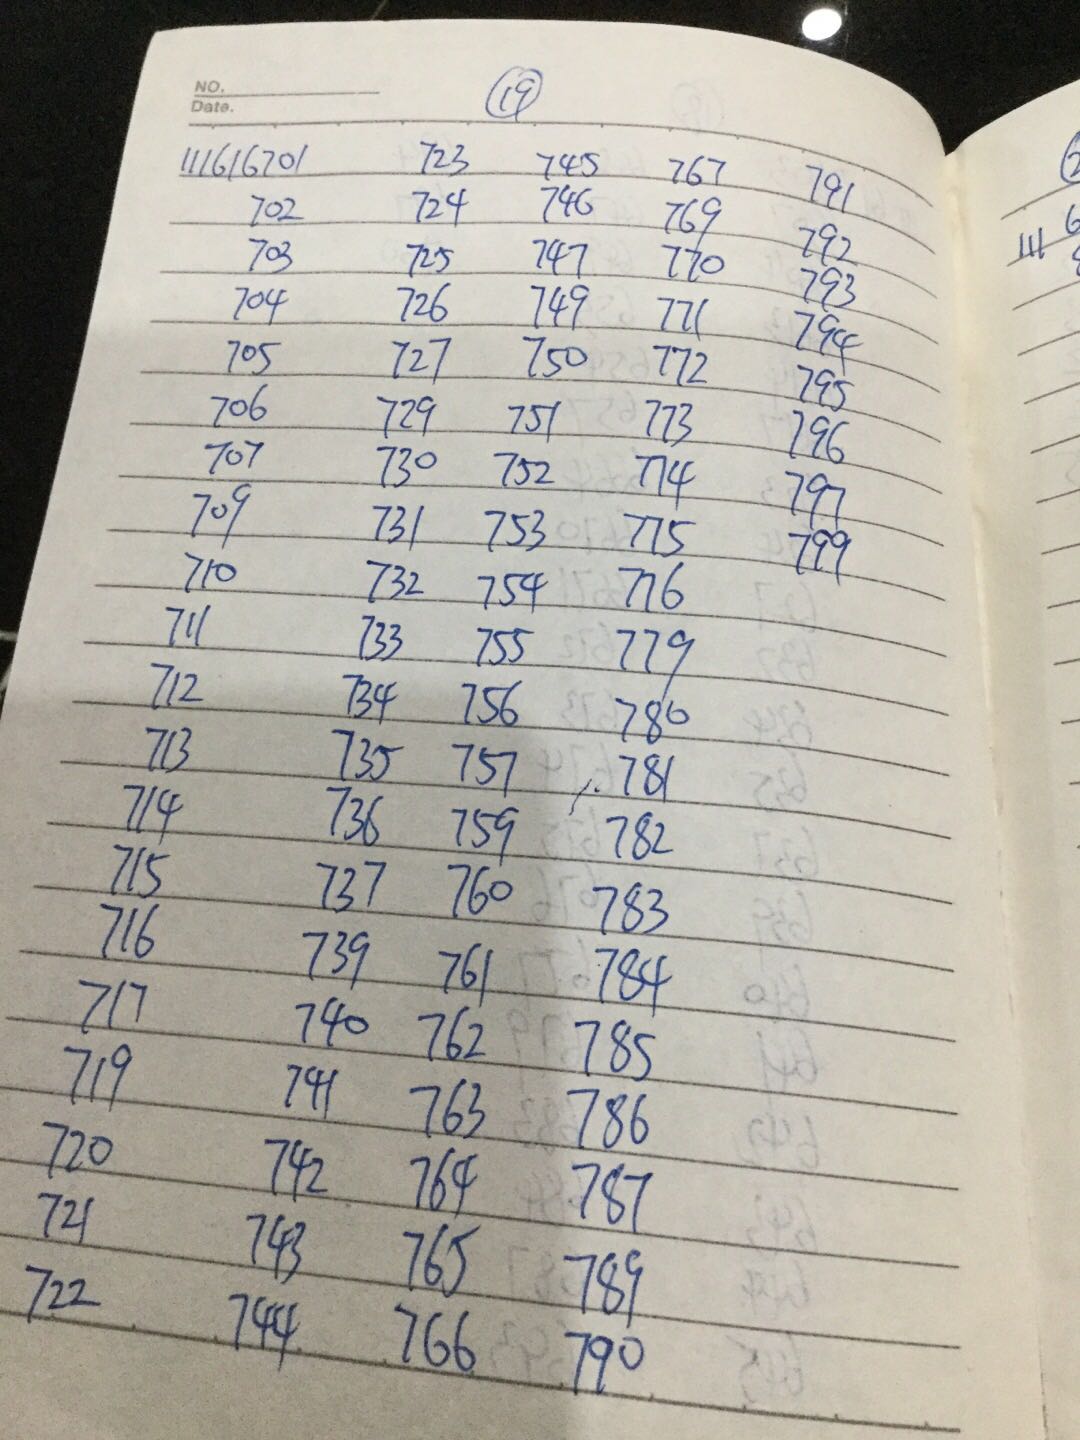 NO.
Date.
19
111616701 723 745 767 791
702 724 746 769 792
703 725 747 770 793
704 726 749 771 794
705 727 750 772 795
706 729 751 773 796
707 730 752 774 797
709 731 753 775 799
710 732 754 776
711 733 755 779
712 734 756 780
713 735 757 781
714 736 759 782
715 737 760 783
716 739 761 784
717 740 762 785
719 741 763 786
720 742 764 787
721 743 765 789
722 744 766 790
111